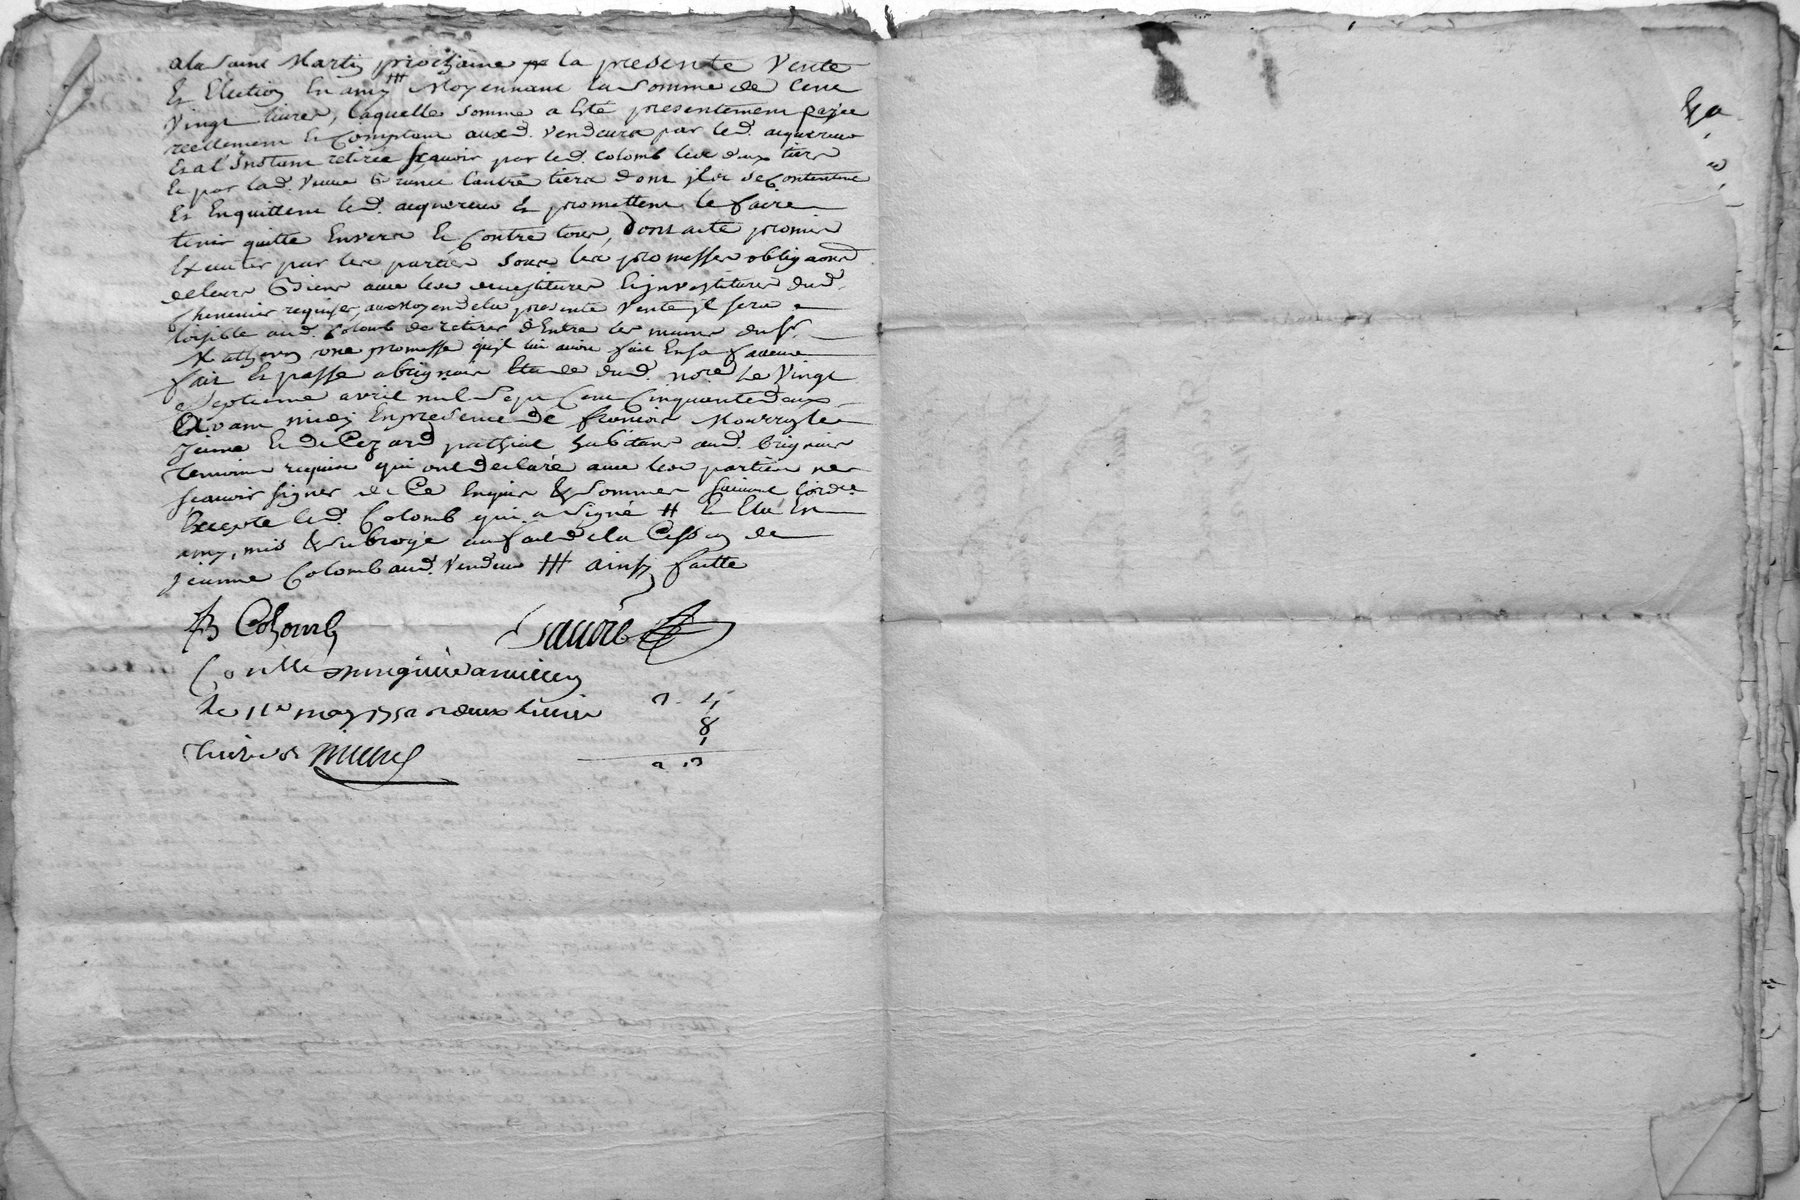 ala Saint Martin prochaine la presente Vente
Et Election En amy ⧺ Moyennant la Somme de Cent
Vingt livres, laquelle Somme a Esté presentement payée
reellement Et Comptant auxd. Vendeurs par led. acquereur
Et a l'Instant retirée Scavoir par led. Colomb les deux tiers
Et par lad. Veuve l'autre tiers dont ils se Contentent
Et Enquittent led. acquereur Et promettent le faire
tenir quitte Envers Et Contre tous, dont acte promis
Executer par les parties Sous les promesses obligaons
de leurs Biens avec les devestitures Et investitures dud.
requise, au moyen de la presente Vente il sera
loisible aud. Colomb de retirer d'Entre les mains du Sr.
une promesse qu'il lui avoit fait En sa faveur
fait Et passé a Brignais Etude dud. nore. Le Vingt
Septieme avril mil Sept Cent Cinquante deux
avant midy En presence de françois Mourry le
Jeune Et de habitans aud. Brignais
temoins requis qui ont declaré avec les parties ne
scavoir signer de Ce Enquis & Sommes suivant l'ordce
Excepté led. Colomb qui a Signé # Et Elu En
amy, mis & subrogé au fait de la Cession de
Jeanne Colomb aud. Vendeur ⧺ ainsy faitte
JB Colomb
Con.lle
le 11e may 1752 R deux livres
2 4
8
1
2 13